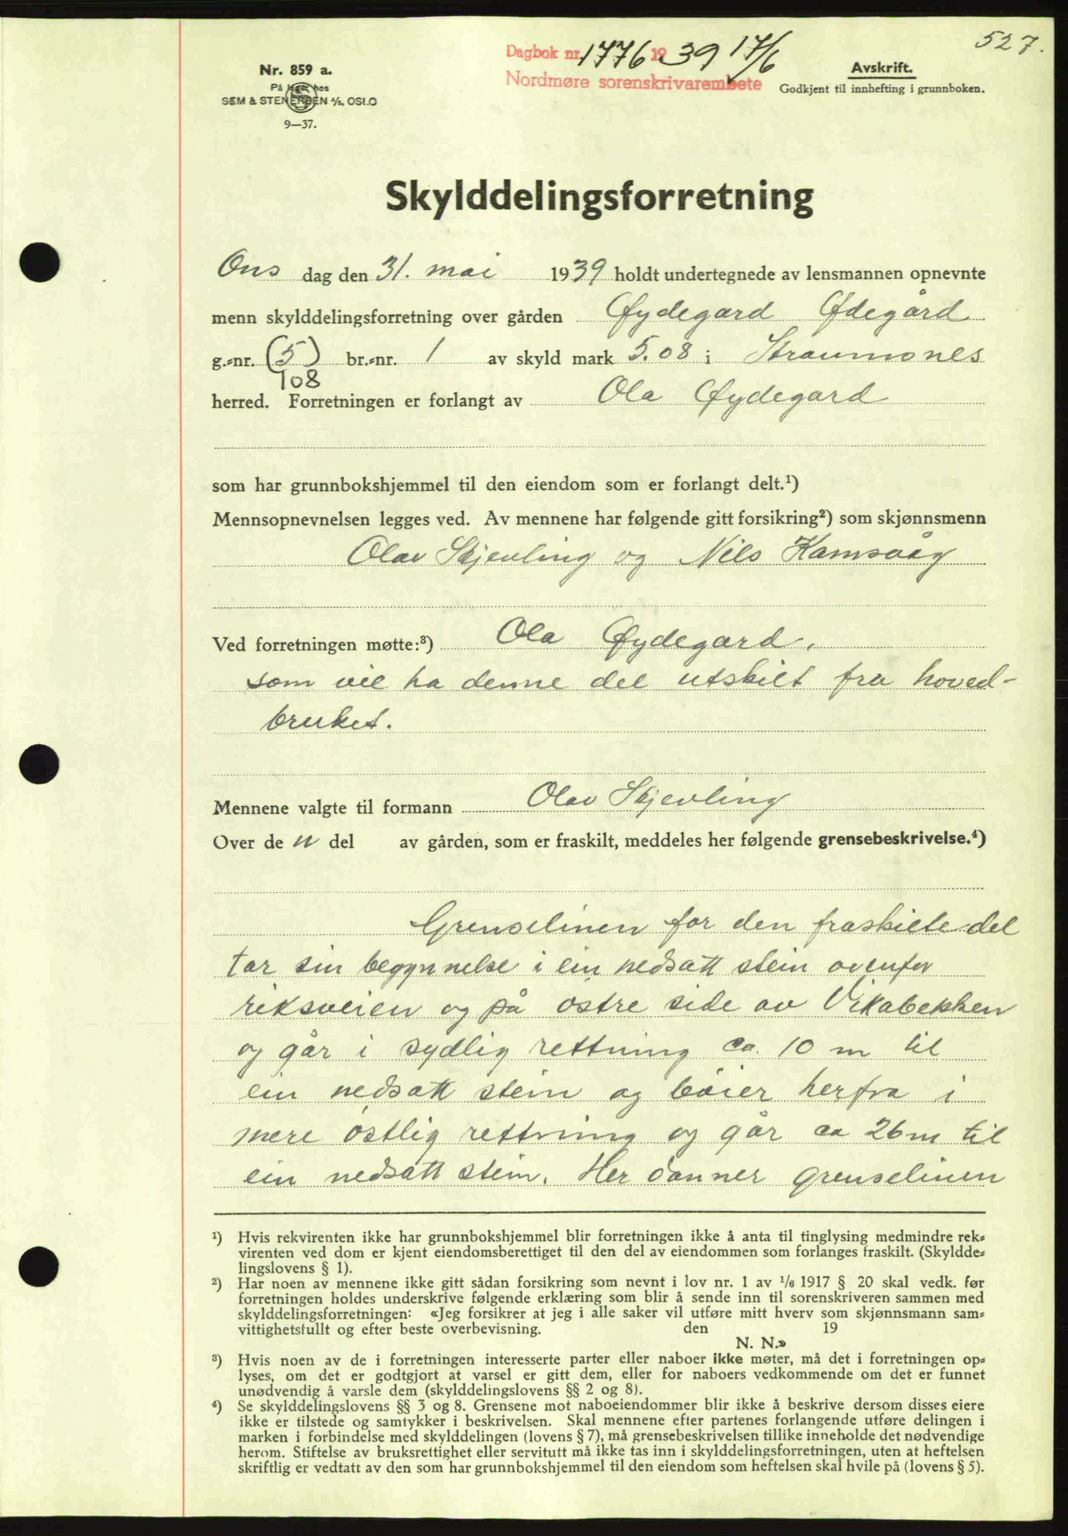 527.
Dagbok nr. 1776 1939 17/6
Nordmøre sorenskrivarembete
Avskrift.
Godkjent til innhefting i grunnboken.
Nr. 859 a.
På lager hos
SEM & STENERSEN A/S, OSLO
9—37.
Skylddelingsforretning
Ons dag den 31. mai 1939 holdt undertegnede av lensmannen opnevnte
menn skylddelingsforretning over gården Øydegard Ødegård
g.-nr. (5) br.-nr. 1 av skyld mark 5.08 i Straumsnes
108
herred. Forretningen er forlangt av Ola Øydegard
som har grunnbokshjemmel til den eiendom som er forlangt delt.¹)
Mennsopnevnelsen legges ved. Av mennene har følgende gitt forsikring²) som skjønnsmenn
Olav Skjevling og Nils Kamsvåg
Ved forretningen møtte:³) Ola Øydegard.
som vil ha denne del utskilt fra hoved-
bruket.
Mennene valgte til formann Olav Skjevling
Over de n del av gården, som er fraskilt, meddeles her følgende grensebeskrivelse.⁴)
Grenselinen for den fraskilte del
tar sin begynnelse i ein nedsatt stein ovenfor
riksveien og på østre side av Vikabekken
og går i sydlig rettning ca. 10 m til
ein nedsatt stein og bøier herfra i
mere østlig rettning og går ca 26 m til
ein nedsatt stein. Her danner grenselinen
¹) Hvis rekvirenten ikke har grunnbokshjemmel blir forretningen ikke å anta til tinglysing medmindre rek-
virenten ved dom er kjent eiendomsberettiget til den del av eiendommen som forlanges fraskilt. (Skyldde-
lingslovens § 1).
²) Har noen av mennene ikke gitt sådan forsikring som nevnt i lov nr. 1 av 1/6 1917 § 20 skal vedk. før
forretningen holdes underskrive følgende erklæring som blir å sende inn til sorenskriveren sammen med
skylddelingsforretningen: «Jeg forsikrer at jeg i alle saker vil utføre mitt hverv som skjønnsmann sam-
vittighetsfullt og efter beste overbevisning. den 19
N. N.»
³) Hvis noen av de i forretningen interesserte parter eller naboer ikke møter, må det i forretningen op-
lyses, om det er godtgjort at varsel er gitt dem, eller for naboers vedkommende om det er funnet
unødvendig å varsle dem (skylddelingslovens §§ 2 og 8).
⁴) Se skylddelingslovens §§ 3 og 8. Grensene mot naboeiendommer blir ikke å beskrive dersom disses eiere
ikke er tilstede og samtykker i beskrivelsen. Skal mennene efter partenes forlangende utføre delingen i
marken i forbindelse med skylddelingen (lovens § 7), må grensebeskrivelsen tillike inneholde det nødvendige
herom. Stiftelse av bruksrettighet eller servitutt må ikke tas inn i skylddelingsforretningen, uten at heftelsen
skriftlig er vedtatt av den som har grunnbokshjemmel til den eiendom som heftelsen skal hvile på (lovens § 5).